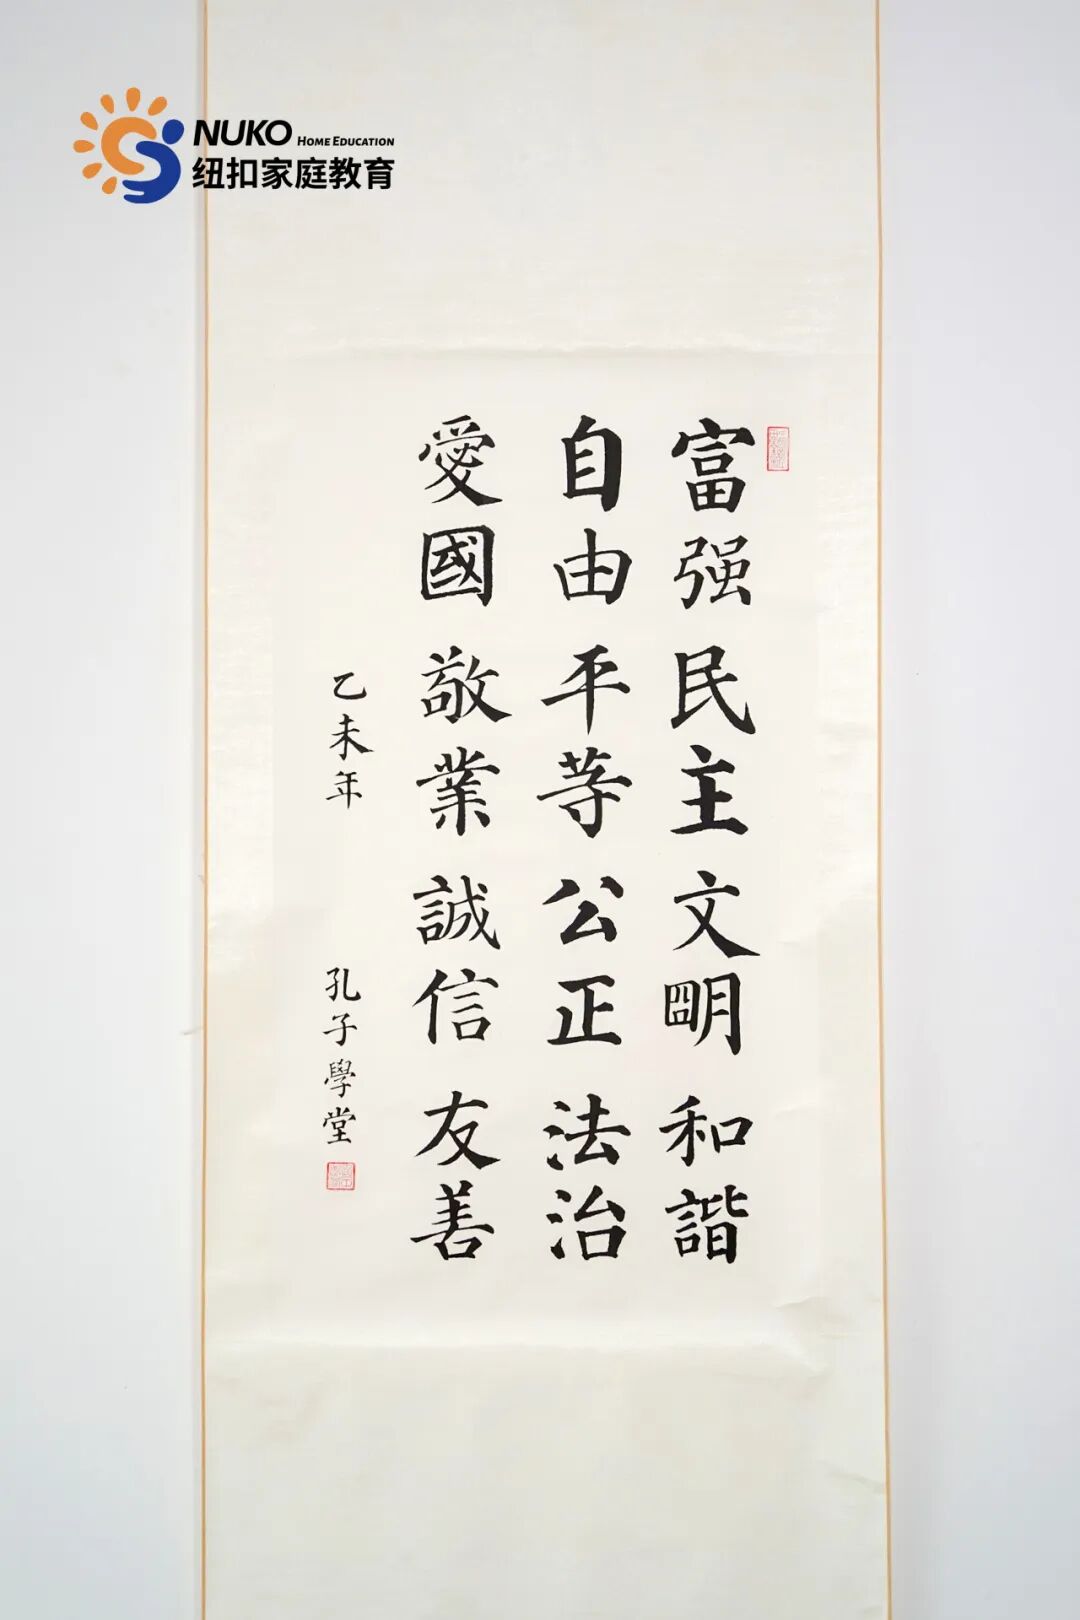 NUKO HOME EDUCATION
纽扣家庭教育
富强民主文明和諧
自由平等公正法治
愛國敬業誠信友善
乙未年
孔子學堂